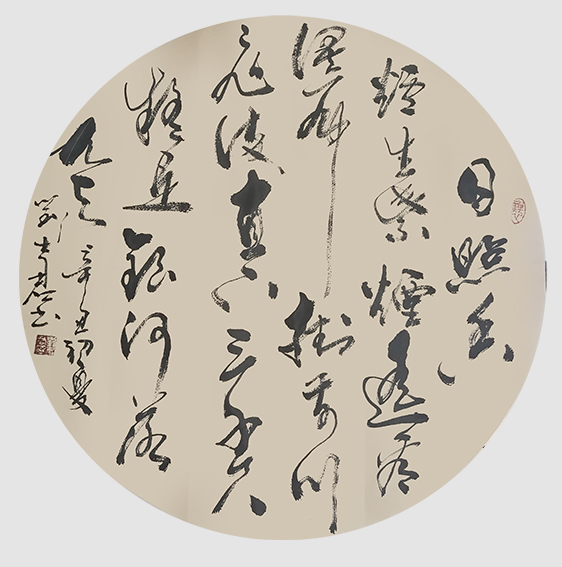 日照香
爐生紫煙遙看
瀑布掛前川
飛流直下三千尺
疑是銀河落
九天 辛丑初夏